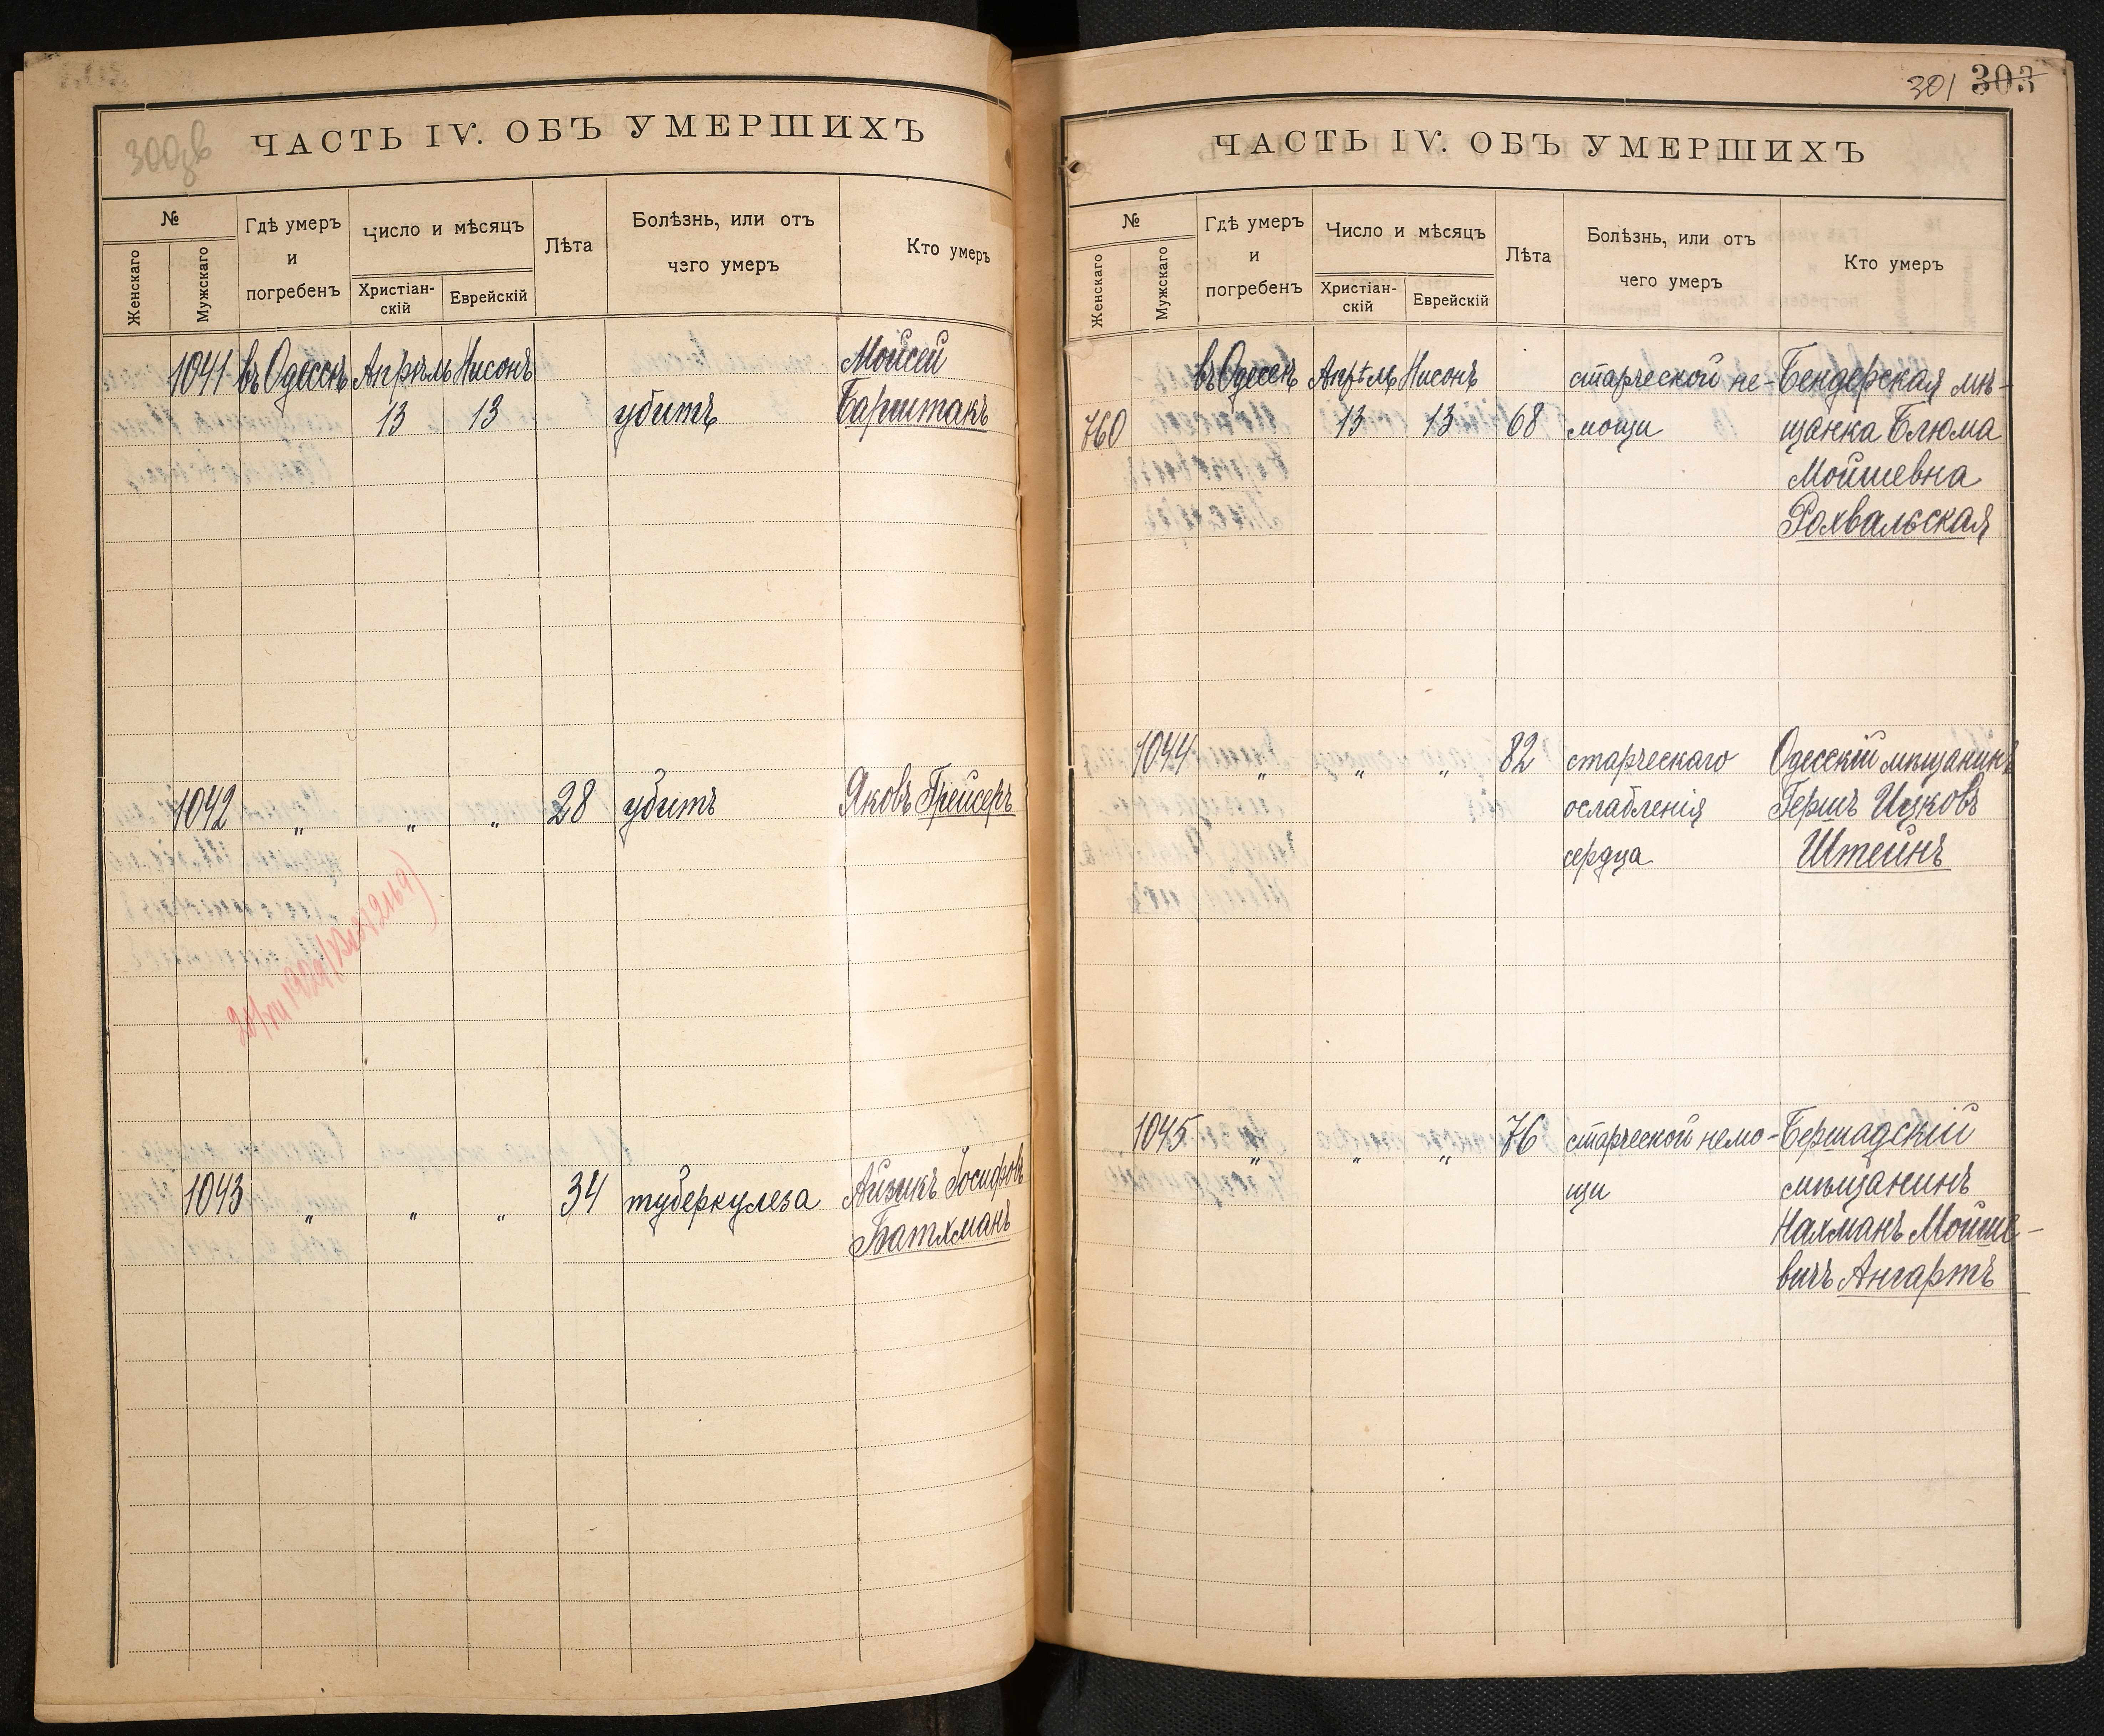 300 зв
ЧАСТЬ IV. ОБЪ УМЕРШИХЪ
№
Женскаго
Мужскаго
Гдѣ умеръ
и
погребенъ
Число и мѣсяцъ
Христіан-
скій
Еврейскій
Лѣта
Болѣзнь, или отъ
чего умеръ
Кто умеръ
1041 въ Одессѣ Апрѣль Нисонъ Мойсей
13 13 убитъ Барштакъ
1042 „ „ „ 28 убитъ Яковъ Грейсеръ
1043 „ „ „ 34 туберкулеза Айзикъ Іосифовъ
Батхманъ
301 303
ЧАСТЬ IV. ОБЪ УМЕРШИХЪ
№
Женскаго
Мужскаго
Гдѣ умеръ
и
погребенъ
Число и мѣсяцъ
Христіан-
скій
Еврейскій
Лѣта
Болѣзнь, или отъ
чего умеръ
Кто умеръ
въ Одессѣ Апрѣль Нисонъ старческой не- Бендерская мѣ-
760 13 13 68 мощи щанка Блюма
Мойшевна
Рохвальская
1044 „ „ „ 82 старческаго Одесскій мѣщанинъ
ослабленія Гершъ Ицковъ
сердца Штейнъ
1045 „ „ „ 76 старческой немо- Бершадскій
щи мѣщанинъ
Нахманъ Мойше-
вичъ Ангартъ